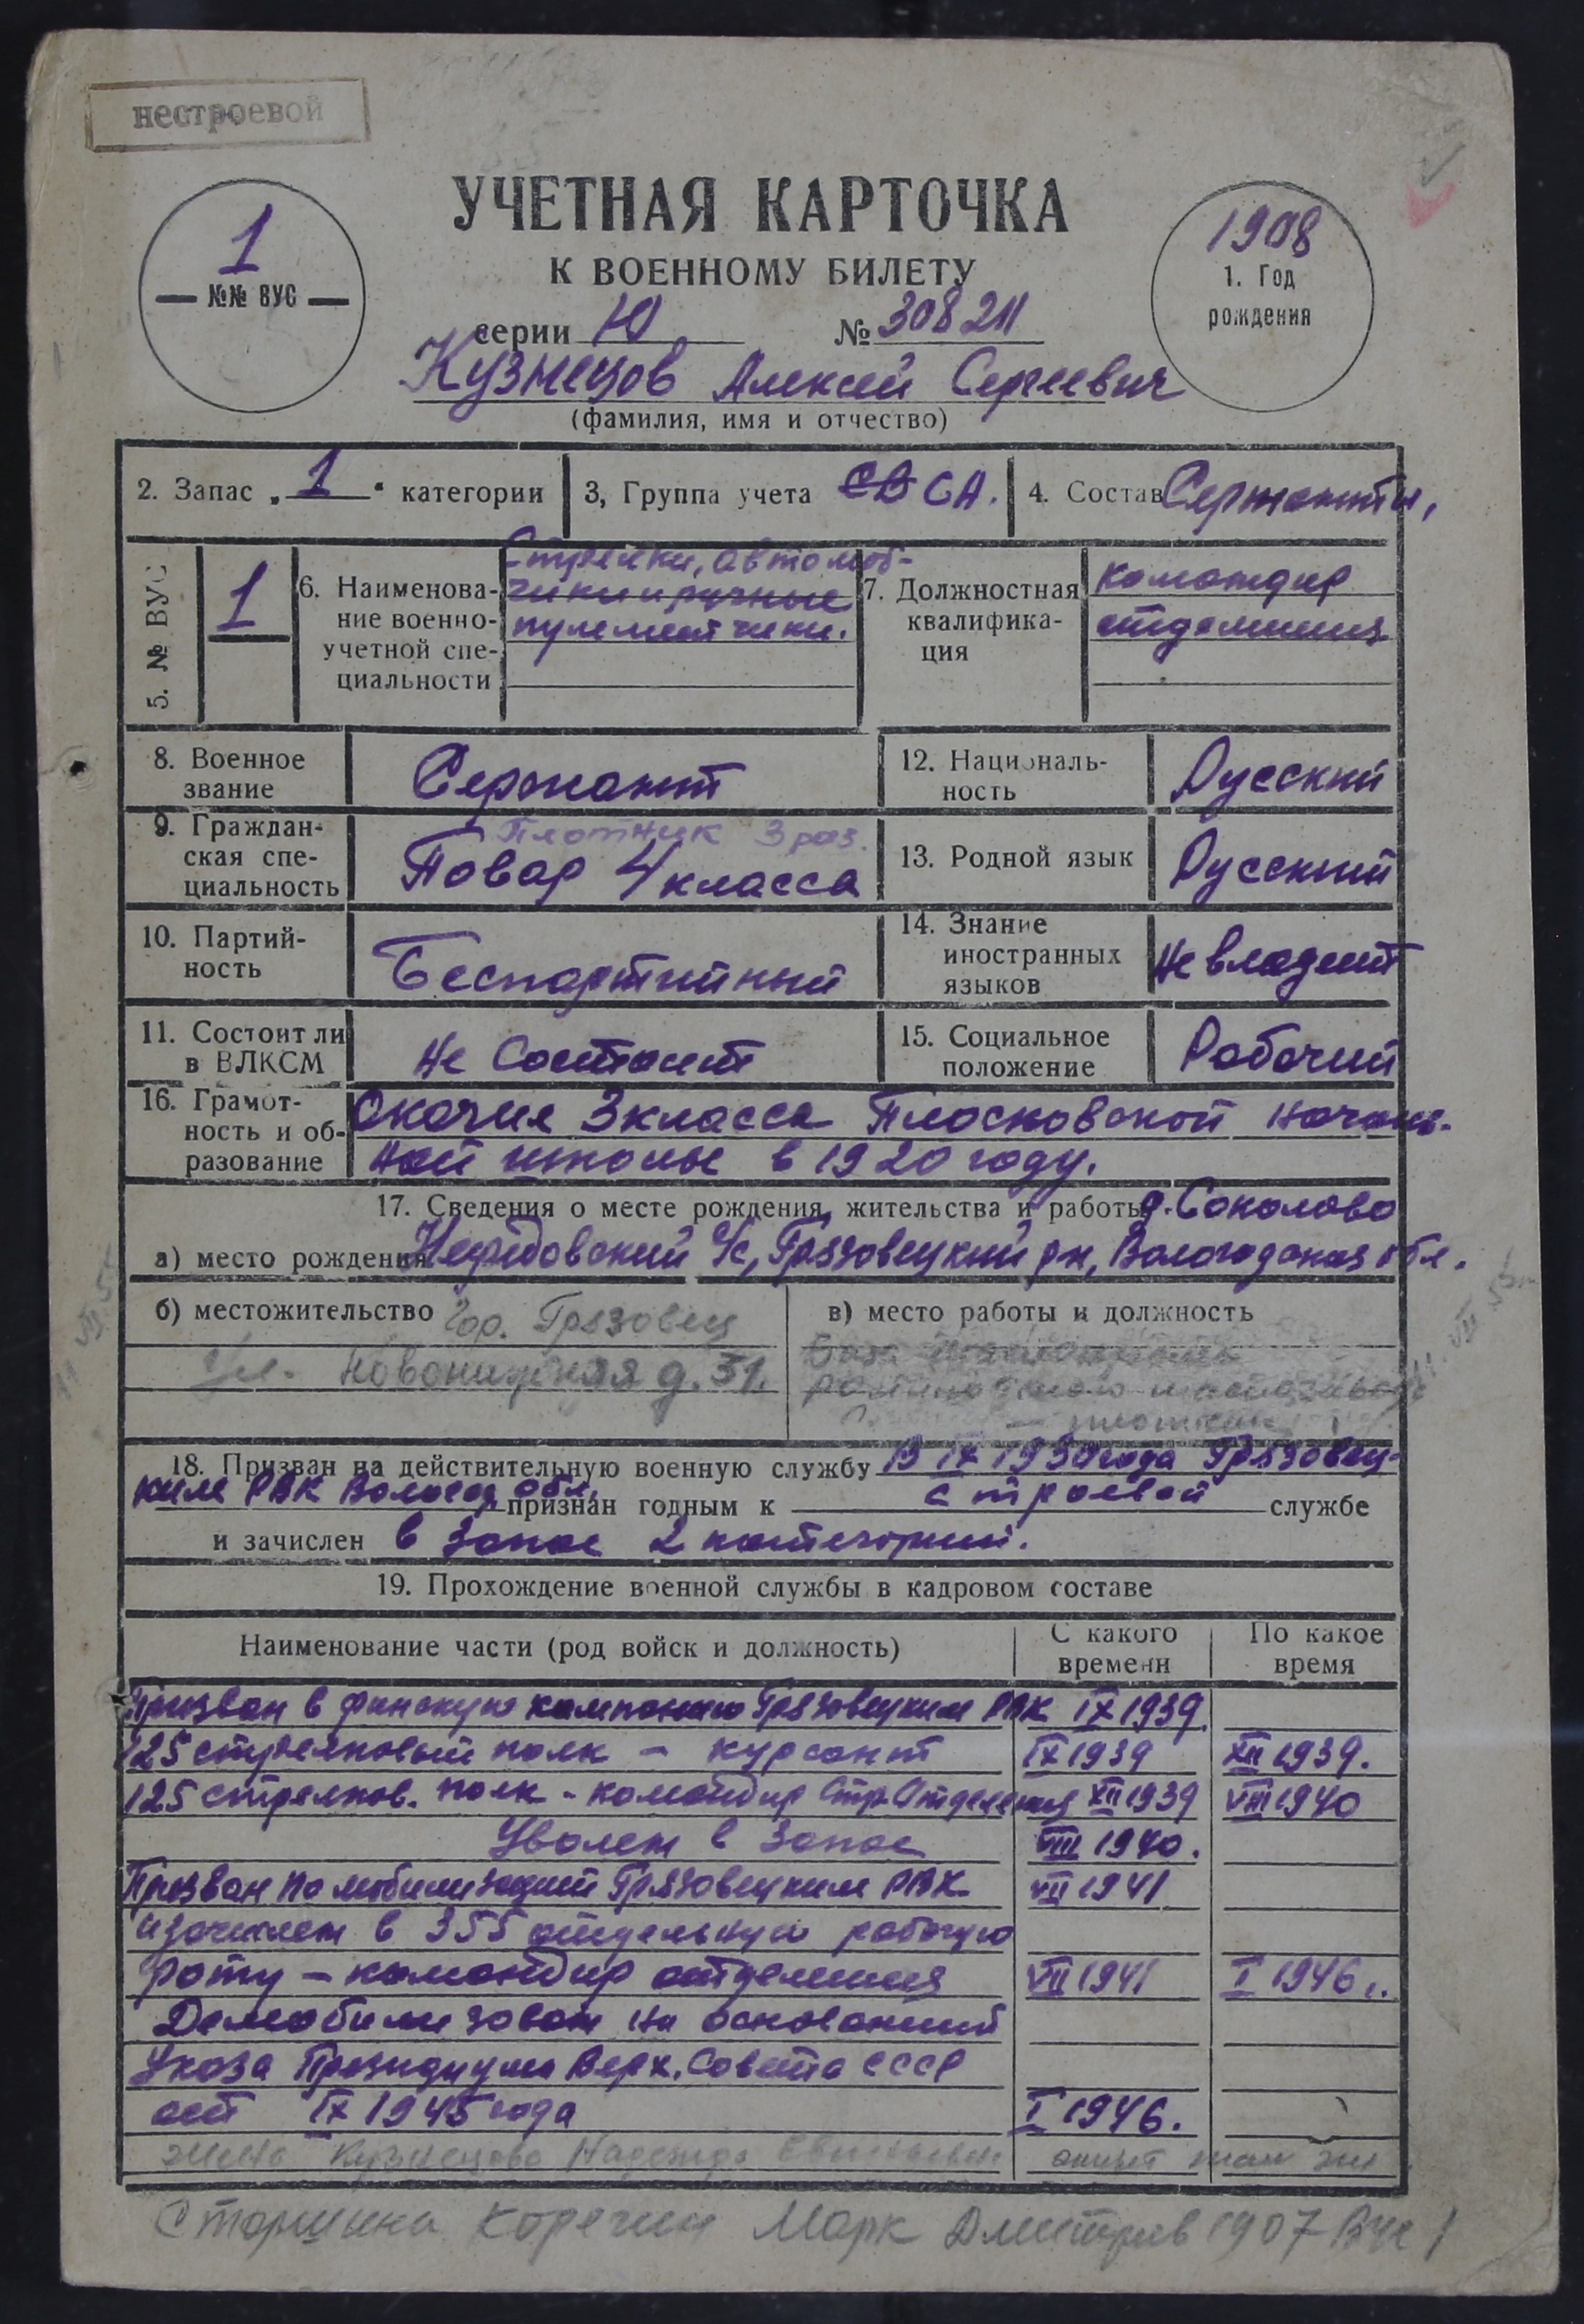 нестроевой
УЧЕТНАЯ КАРТОЧКА
К ВОЕННОМУ БИЛЕТУ
1
№№ ВУС
1908
1. Год
рождения
серии Ю № 308211
Кузнецов Алексей Сергеевич
(фамилия, имя и отчество)
2. Запас „1“ категории
3, Группа учета СВ СА.
4. Состав Сержанты,
5. № ВУС
1
6. Наименова-
ние военно-
учетной спе-
циальности
Стрелки, автомат-
чики и ручные
пулеметчики.
7. Должностная
квалифика-
ция
командир
отделения
8. Военное
звание
Сержант
12. Националь-
ность
Русский
9. Граждан-
ская спе-
циальность
Плотник 3 раз.
Повар 4 класса
13. Родной язык
Русский
10. Партий-
ность
Беспартийный
14. Знание
иностранных
языков
Не владеет
11. Состоит ли
в ВЛКСМ
Не Состоит
15. Социальное
положение
Рабочий
16. Грамот-
ность и об-
разование
Окочил 3 класса Плосковской началь-
ной школы в 1920 году.
17. Сведения о месте рождения, жительства и работы д. Соколово
а) место рождения С/с, Грязовецкий рн, Вологодская обл.
б) местожительство Гор. Грязовец
ул. д. 31.
в) место работы и должность
18. Призван на действительную военную службу В IX 1930 года Грязовец-
ким РВК Вологод обл. признан годным к строевой службе
и зачислен в запас 2 категории.
19. Прохождение военной службы в кадровом составе
Наименование части (род войск и должность)
С какого
времени
По какое
время
Призван в финскую компанию Грязовецким РВК IX 1939.
125 стрелковый полк – курсант IX 1939 XII 1939.
125 стрелков. полк - командир Стр. Отделения XII 1939 VIII 1940
Уволен в запас VIII 1940.
Призван по мобилизации Грязовецким РВК VII 1941
и зачислен в 355 отдельную рабочую
роту – командир отделения VII 1941 I 1946 г.
Демобилизован на основании
Указа Президиума Верх. Совета СССР
от IX 1945 года I 1946.
жена Кузнецова Надежда
Старшина Корегин Марк Дмитрив 1907 ВУС 1